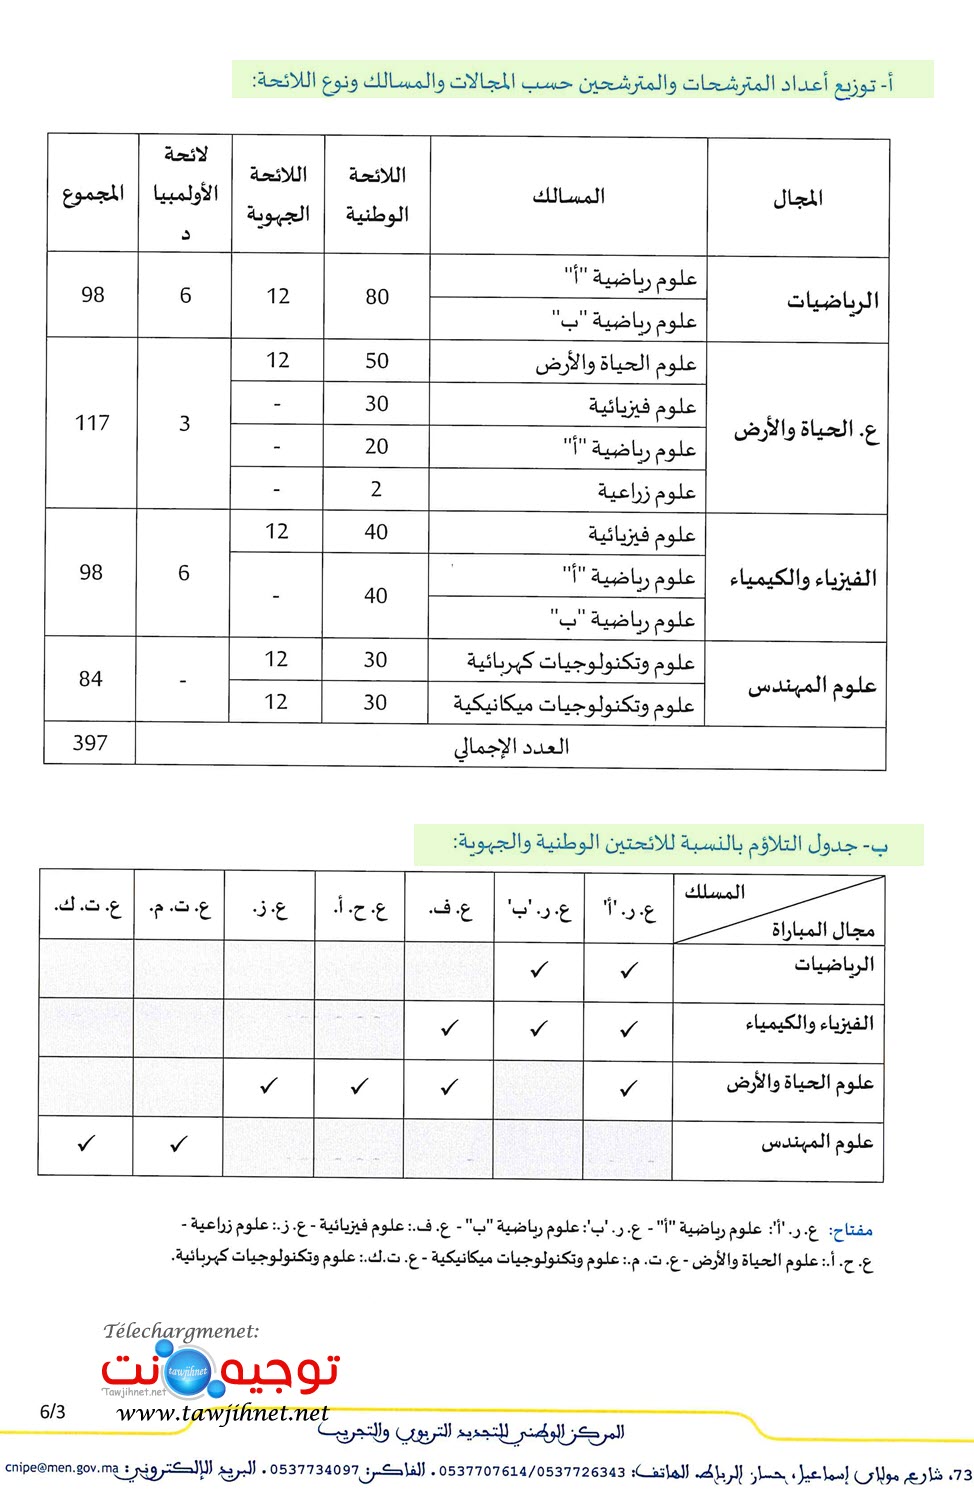 أ- توزيع أعداد المترشحات والمترشحين حسب المجالات والمسالك ونوع اللائحة:
المجال المسالك اللائحة الوطنية اللائحة الجهوية لائحة الأولمبيا د المجموع
الرياضيات علوم رياضية "أ" 80 12 6 98
علوم رياضية "ب"
ع. الحياة والأرض علوم الحياة والأرض 50 12 3 117
علوم فيزيائية 30 -
علوم رياضية "أ" 20 -
علوم زراعية 2 -
الفيزياء والكيمياء علوم فيزيائية 40 12 6 98
علوم رياضية "أ" 40 -
علوم رياضية "ب"
علوم المهندس علوم وتكنولوجيات كهربائية 30 12 - 84
علوم وتكنولوجيات ميكانيكية 30 12
العدد الإجمالي 397
ب- جدول التلاؤم بالنسبة للائحتين الوطنية والجهوية:
المسلك
مجال المباراة
ع. ر. 'أ' ع. ر. 'ب' ع. ف. ع. ح. أ. ع. ز. ع. ت. م. ع. ت. ك.
الرياضيات ✓ ✓
الفيزياء والكيمياء ✓ ✓ ✓
علوم الحياة والأرض ✓ ✓ ✓ ✓
علوم المهندس ✓ ✓
مفتاح: ع. ر. 'أ': علوم رياضية "أ" - ع. ر. 'ب': علوم رياضية "ب" - ع. ف.: علوم فيزيائية - ع. ز.: علوم زراعية -
ع. ح. أ.: علوم الحياة والأرض - ع. ت. م.: علوم وتكنولوجيات ميكانيكية - ع. ت.ك.: علوم وتكنولوجيات كهربائية.
Télechargmenet:
توجيه نت
tawjihnet
Tawjihnet.net
www.tawjihnet.net
6/3
المركز الوطني للتجديد التربوي والتجريب
73، شارع مولاي إسماعيل، حسان الرباط. الهاتف: 0537707614/0537726343 . الفاكس: 0537734097 . البريد الإلكتروني: cnipe@men.gov.ma